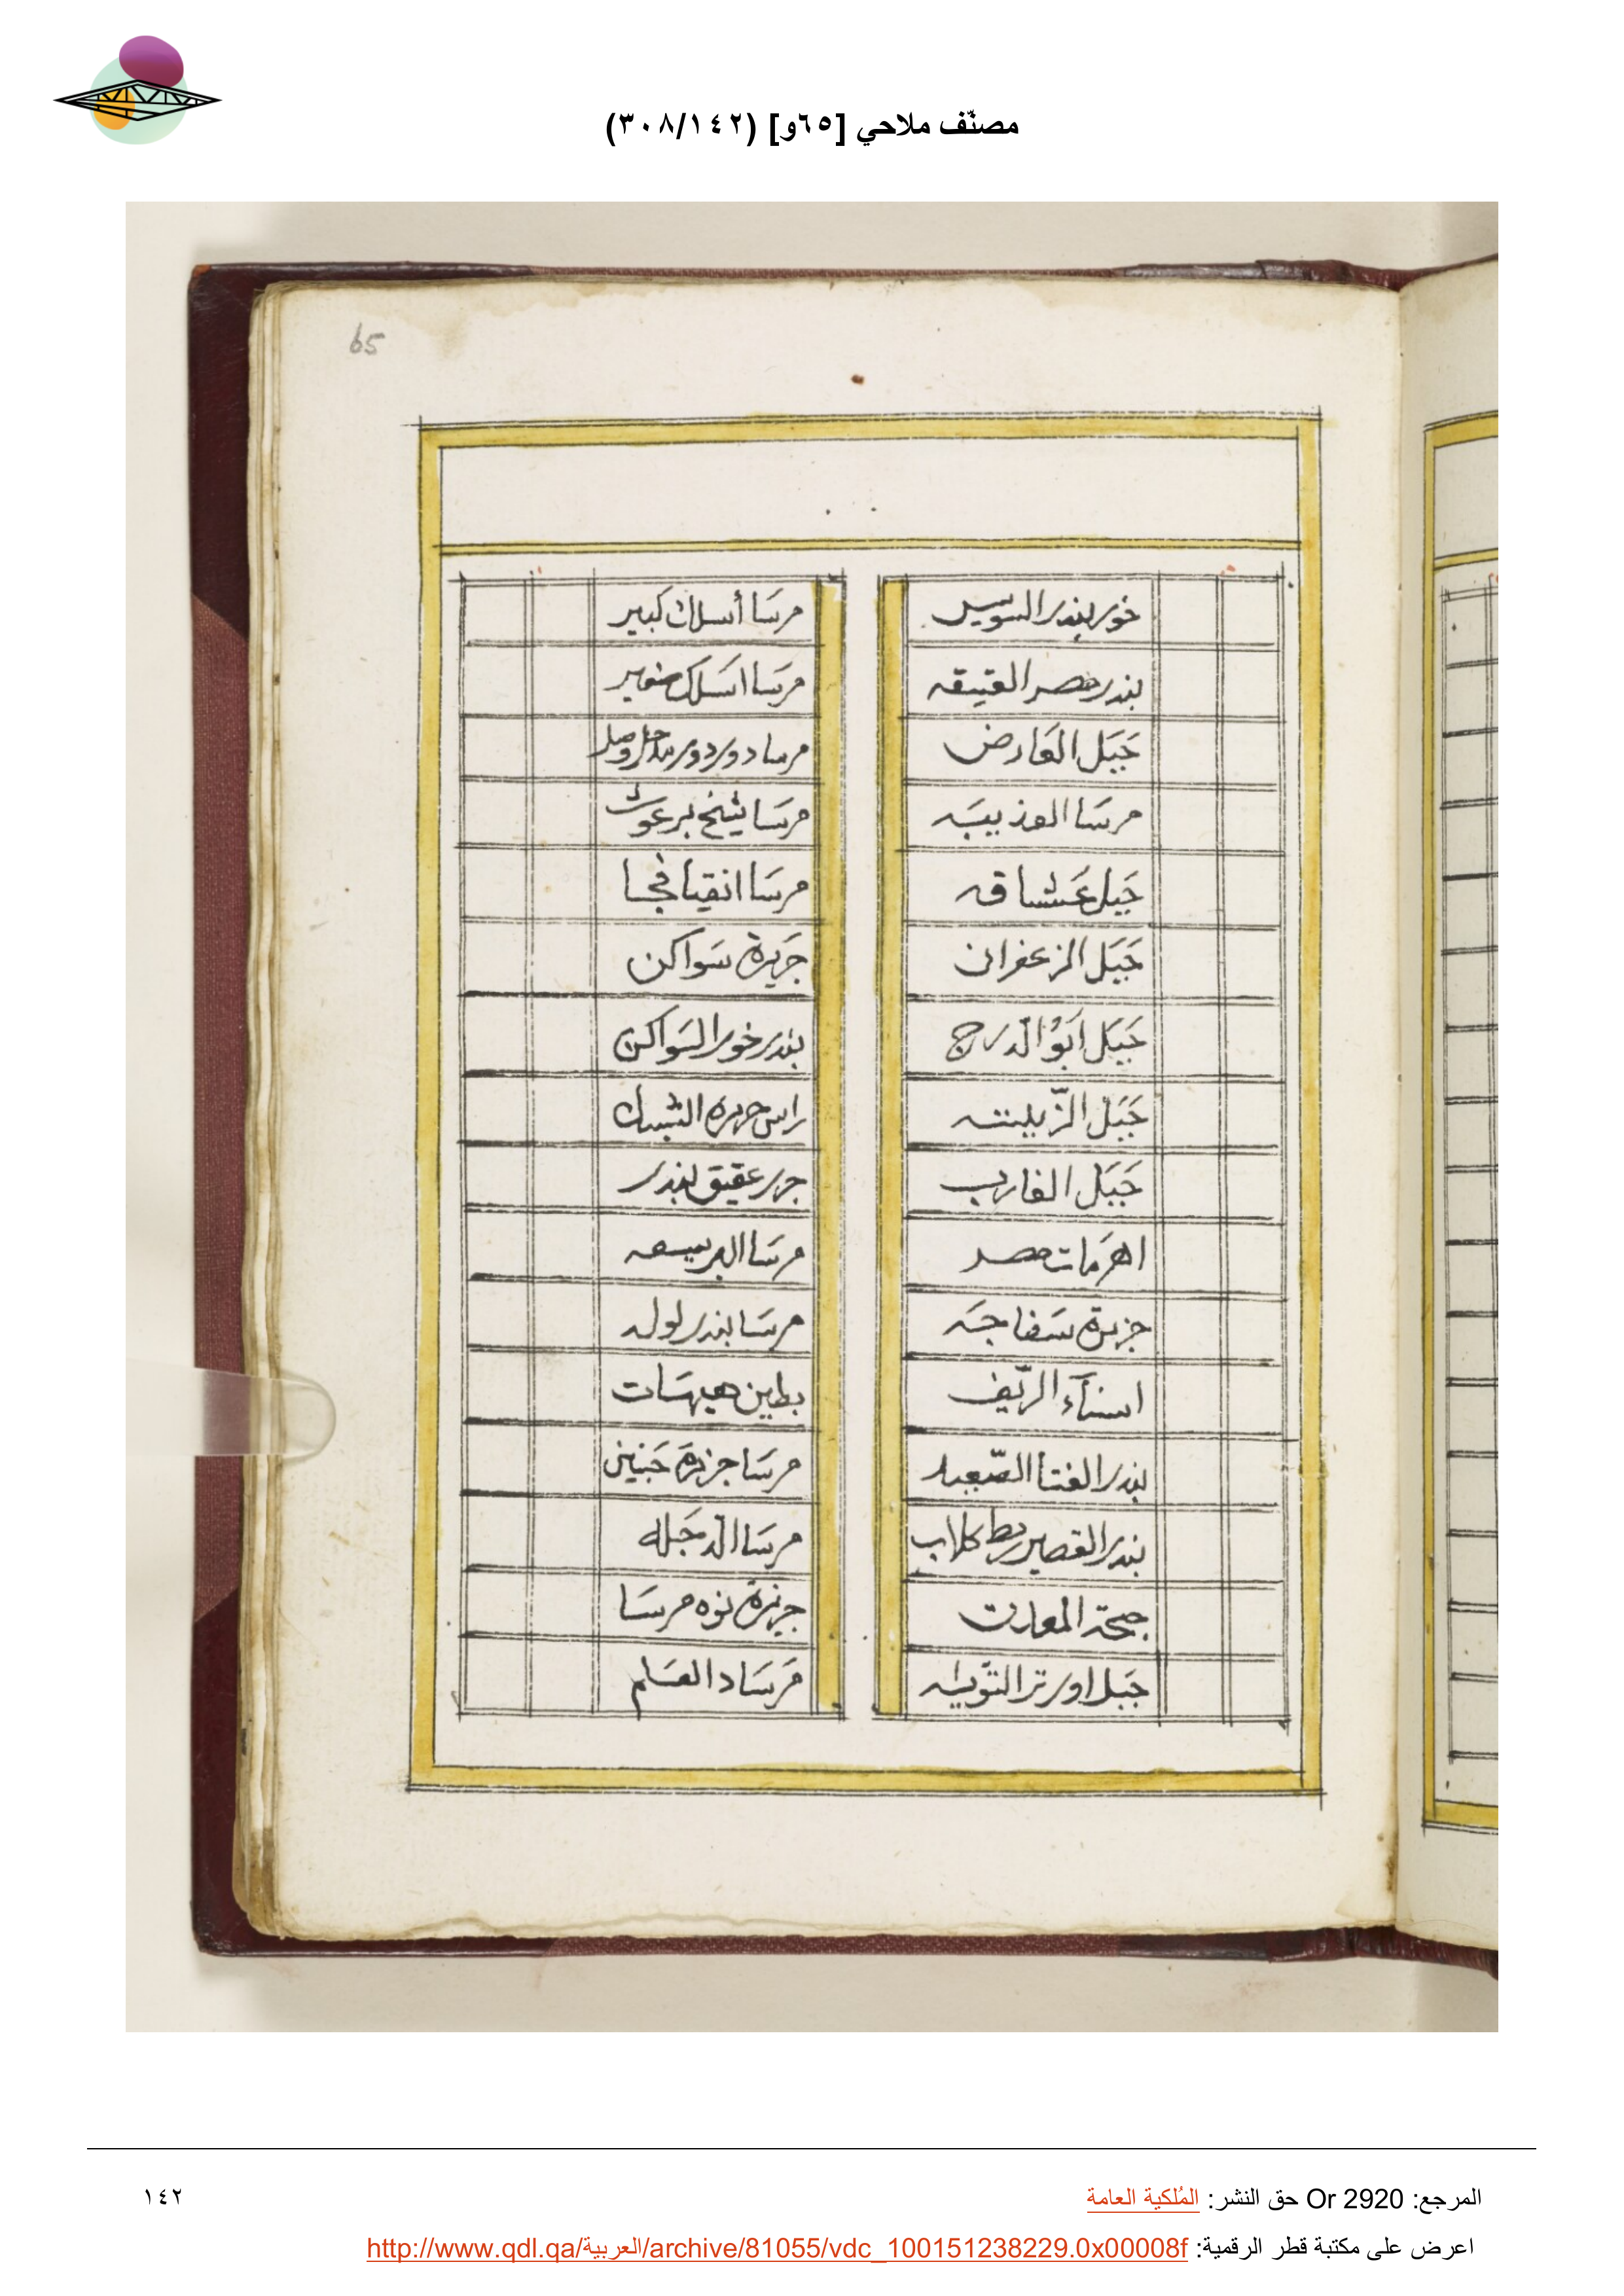 مصنّف ملاحي [٦٥و] (٣٠٨/١٤٢)
65
خور بندر السويس
بندر مصر العتيقه
جَبَل العَارض
مرسَا العذيبَه
جَبل عَشاقه
جَبَل الزعفران
جَبَل اَبوُ الدرج
جَبَل الزّيلته
جَبَل الغارب
اهرَمات مصر
جزيرة سَفاجَه
اسنآء الرّيف
بندر القنا الصّعيد
بندر القصير بط كلاب
جَبل
مرسَا أسلاك كبير
مرسَا اسَلاك صغير
مرسا دور دور
مرسَا شيخ برغوث
مرسَا
جَزيرة سَواكن
بندر خور السَواكن
راس جزيرة الشبك
عقيق بندر
مرسَا
مرسَا بندر لوله
بطين
مرسَا جزيرة
مرسَا الدجَله
جزيرة نوه مرسَا
مَرسَا
المرجع: Or 2920 حق النشر: المُلكية العامة
١٤٢
اعرض على مكتبة قطر الرقمية: http://www.qdl.qa/العربية/archive/81055/vdc_100151238229.0x00008f